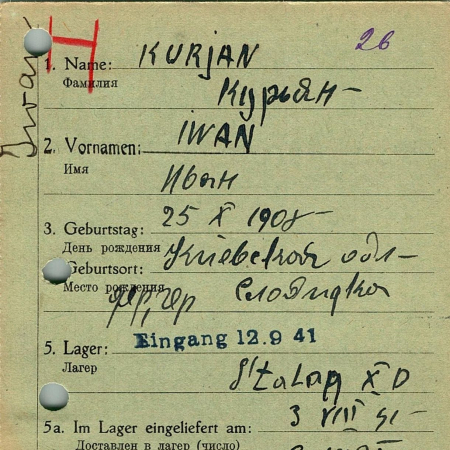 26
1. Name: KURJAN
Фамилия
Курьян
2. Vornamen: IWAN
Имя
Иван
3. Geburtstag: 25 X 1908
День рождения
Geburtsort: обл-
Место рождения Слободка
Eingang 12.9 41
5. Lager:
Лагерь
Stalag X D
3 VIII 41-
5a. Im Lager eingeliefert am:
Доставлен в лагерь (число)